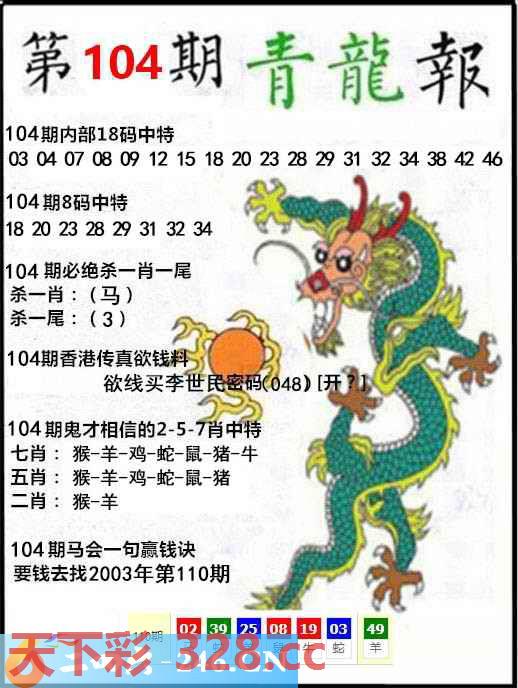 第104期 青龍報
104期内部18码中特
03 04 07 08 09 12 15 18 20 23 28 29 31 32 34 38 42 46
104期8码中特
18 20 23 28 29 31 32 34
104期必绝杀一肖一尾
杀一肖：（马）
杀一尾：（3）
104期香港传真欲钱料
欲线买李世民密码(048)[开?]
104期鬼才相信的2-5-7肖中特
七肖：猴-羊-鸡-蛇-鼠-猪-牛
五肖：猴-羊-鸡-蛇-鼠-猪
二肖：猴-羊
104期马会一句赢钱诀
要钱去找2003年第110期
期 02 39 25 08 19 03 49
鼠 牛 蛇 羊
天下彩-328.cc